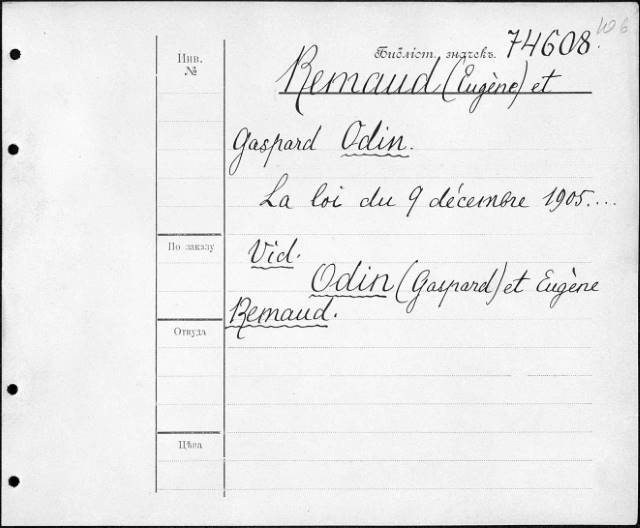 Инв.
№
Библіот. значекъ. 74608.
Remaud (Eugène) et
Gaspard Odin.
La loi du 9 décembre 1905....
По заказу
Vid.
Odin (Gaspard) et Eugène
Remaud.
Откуда
Цѣна